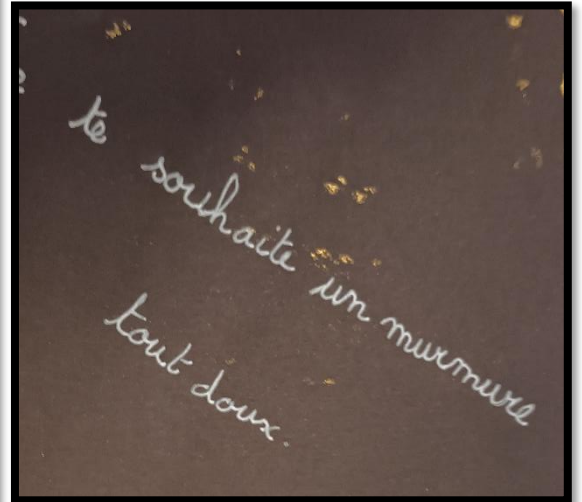 te souhaite un murmure
tout doux.